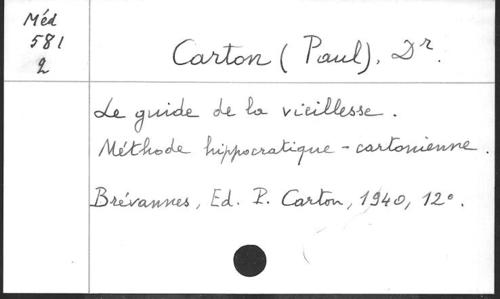 Méd
581
2
Carton (Paul). Dr.
Le guide de la vieillesse.
Méthode hippocratique - cartonienne.
Brévannes, Ed. P. Carton, 1940, 12°.